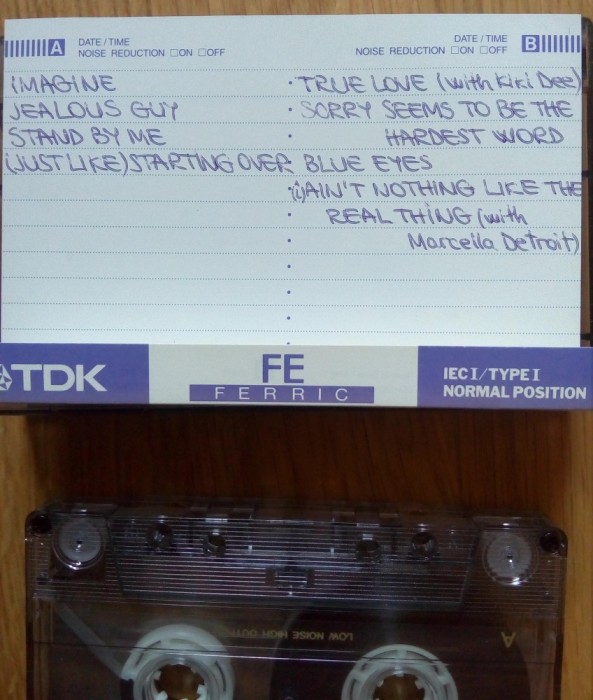 A DATE/TIME
NOISE REDUCTION □ON □OFF
DATE/TIME B
NOISE REDUCTION □ON □OFF
IMAGINE
JEALOUS GUY
STAND BY ME
(JUST LIKE) STARTING OVER
· TRUE LOVE (with Kiki Dee)
· SORRY SEEMS TO BE THE
HARDEST WORD
BLUE EYES
AIN'T NOTHING LIKE THE
REAL THING (with
Marcella Detroit)
TDK
FE
FERRIC
IEC I/TYPE I
NORMAL POSITION
LOW NOISE HIGH OUTPUT
A